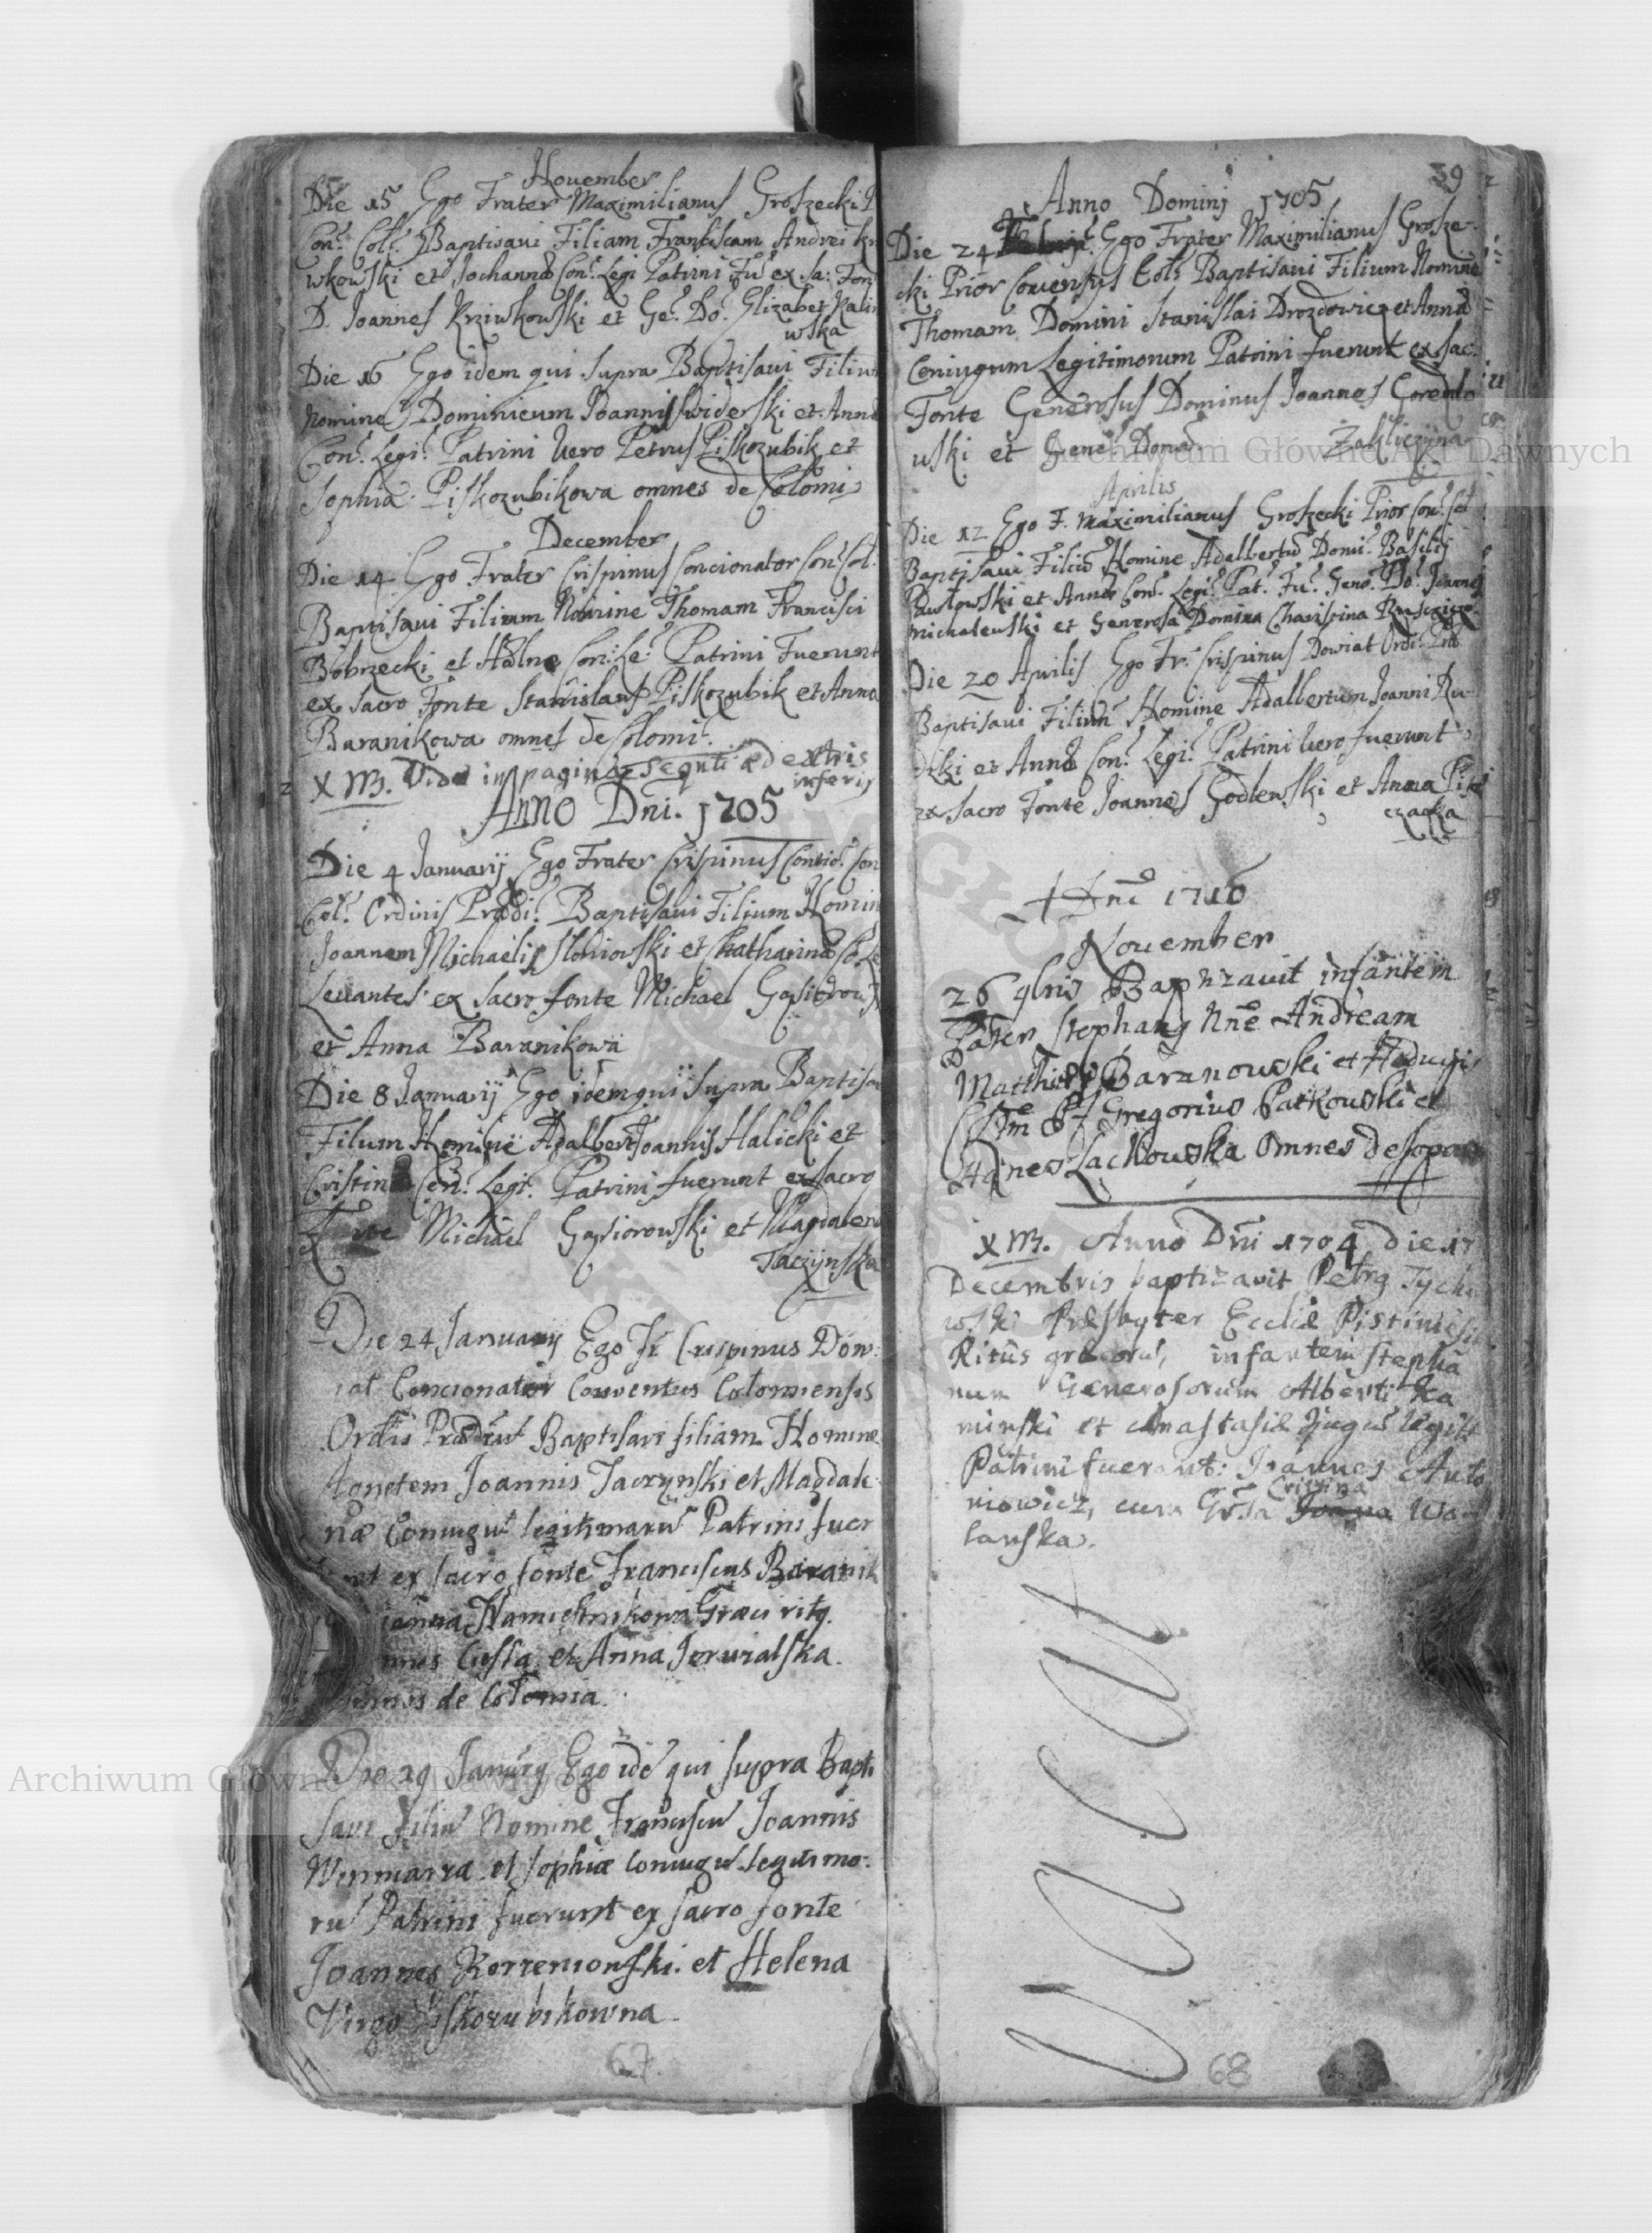 November
Die 15 Ego Frater Maximilianus Groszecki P
Con: Col: Baptisavi Filiam Franciscam Andrei Kri
wkowski et Johannæ Con: Legi Patrini Fu: ex sa: Fon
D. Joannes Kriwkowski et Ge: Do: Elizabet Kalin
wska
Die 16 Ego idem qui supra Baptisavi Filium
Nomine Dominicum Joannis Swiderski et Annæ
Con: Legi: Patrini Vero Petrus Piskozubik et
Sophia Piskozubikowa omnes de Colomi
December
Die 14 Ego Frater Crispinus Concionator Con: Col:
Baptisavi Filium Nomine Thomam Francisci
Bobrzecki et Con: Le: Patrini Fuerunt
ex Sacro Fonte Stanislaus Piskozubik et Anna
Baranikowa omnes de Colomi:
X M. Vide in pagina sequti a dextris
inferis
Anno Dni. 1705
Die 4 Januarij Ego Frater Crispinus Concio: Con
Col: Ordinis Prædi: Baptisavi Filium Nomin
Joannem Michaelis et Chatharinæ Co: Le
Levantes ex Sacro fonte Michael
et Anna Baranikowa
Die 8 Januarij Ego idem qui supra Baptisa
Filium Nomine Adalbert Joannis Halicki et
Cristinæ Con: Legi: Patrini fuerunt ex Sacro
Michael Gąsiorowski et Magdalena
Taczynska
Die 24 January Ego Fr Crispinus Dow
iat Concionator Conventus Colomiensis
Ordis Prædicu Baptisavi filiam Nomine
Agnetem Joannis Taczynski et Magdale
næ Coniugu legitimaru Patrini fuer
unt ex sacro fonte Franciscus Baranik
Græci ritq.
et Anna
de Colomia.
Die 29 Januarij Ego ide qui supra Bapti
savi filiu Nomine Franciscu Joannis
Winniarza et Sophiæ Coniugu legitimo:
ru Patrini fuerunt ex sacro fonte
Joannes Korzeniowski et Helena
Virgo Piskozubikowna
67
39
Anno Domini 1705
Die 24 Ego Frater Maximilianus Grosze-
cki Prior Convensys Col: Baptisavi Filium Nomine
Thomam Domini Stanislai Drozdowicz et Annæ
Coniugum Legitimorum Patrini fuerunt ex Sac:
Fonte Generosus Dominus Joannes
uski et Gene: Domi:
Aprilis
Die 12 Ego F. Maximilianus Groszecki Prior Con: Col
Baptisavi Filiu Nomine Adalbertu Domi: Basilij
Pawlowski et Annæ Con: Legi: Pat: Fu: Geno: Do: Joannes
Michalewski et Generosa Domina Christina
Die 20 Aprilis Ego Fr: Crispinus Dowiat Ordi: Præ
Baptisavi Filium Nomine Adalbertum Joanni Ru-
dzki et Annæ Con: Legi: Patrini Vero fuerunt
ex Sacro Fonte Joannes Godlewski et Anna Pise
czacka
A Dni 1716
November
26 9bris Baptizavit infantem
Pater Stephanq Nne Andream
Matthiæ Baranowski et Hedvigis
Gregorius Patkowski et
Agnes Lachowska Omnes de
X M. Anno Dni 1704 die 17
Decembris baptizavit Petrq Tycho
wski Presbyter Ecclæ Pistiniesis
Ritus græcoru, infantem Stepha
num Generosorum Alberti Ka
minski et Anastasiæ
Patrini fuerunt: Joannes Anto
niowicz, cum Grsa Cristina Wo-
lanska.
Vacat
68
Archiwum Główne Akt Dawnych
Archiwum Główne Akt Dawnych